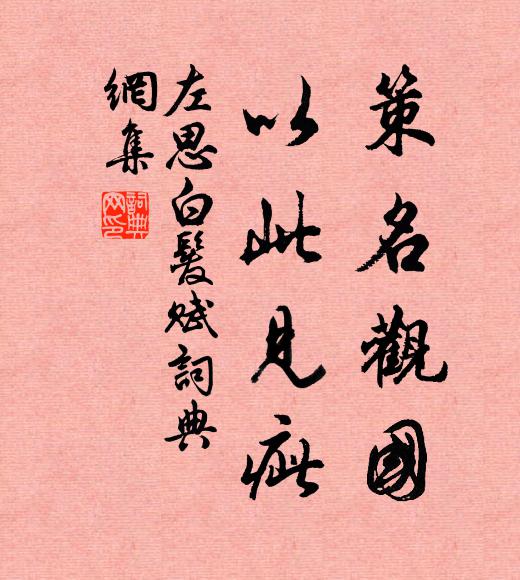 策名觀國
以此見疵
左思白髮賦詞典
網集
詞典
网印